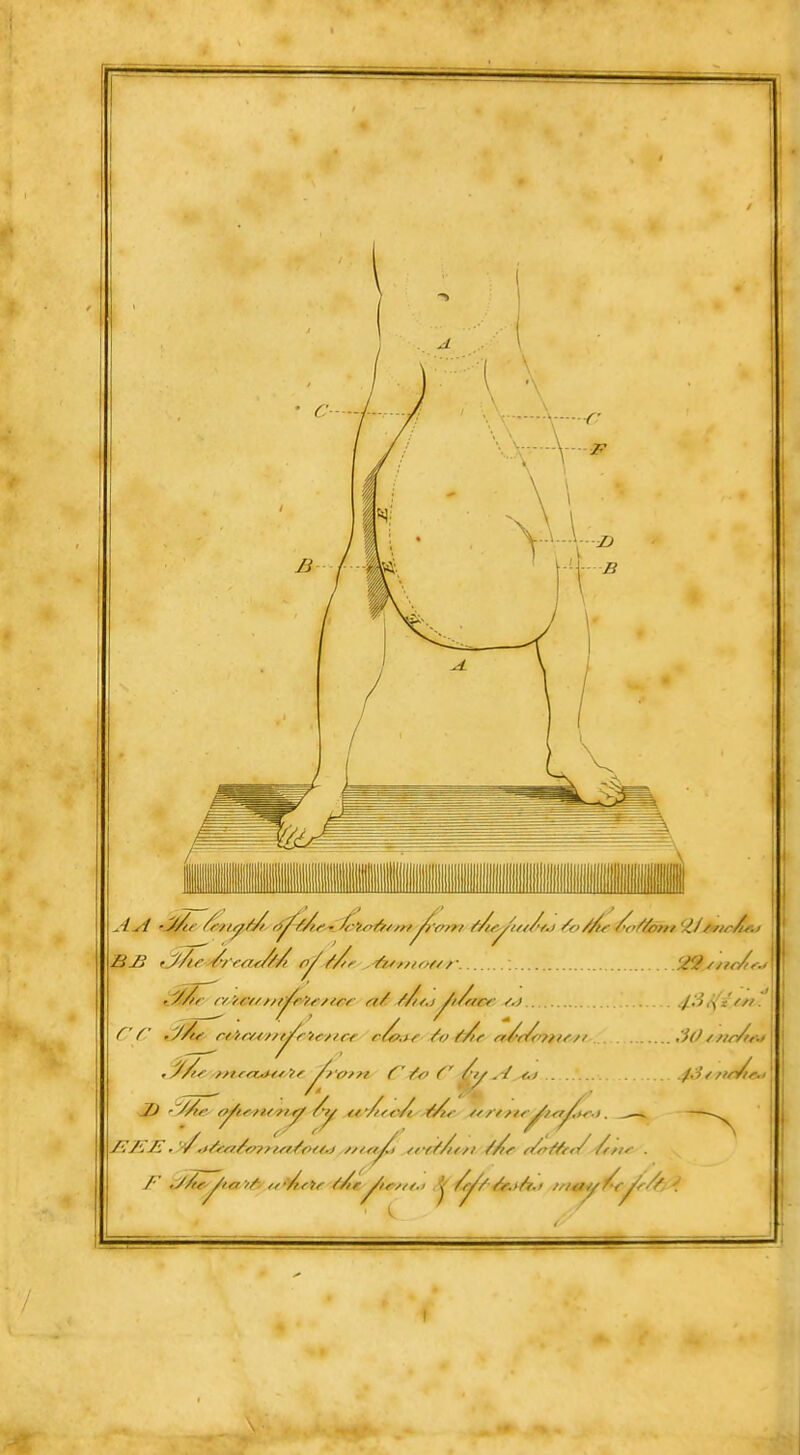 A
C
C
F
E
D
B
E
B
E
A
AA The length of the Scrotum from the pubis to the bottom 21 inches
BB The breadth of the tumour 22 inches
The circumference at this place is 43½ in.
CC The circumference close to the abdomen 30 inches
The measure from C to C by A is 43 inches
D The opening by which the urine passes.
EEE. Steatomatous mass within the dotted line.
F The part where the penis & left testis may be felt.